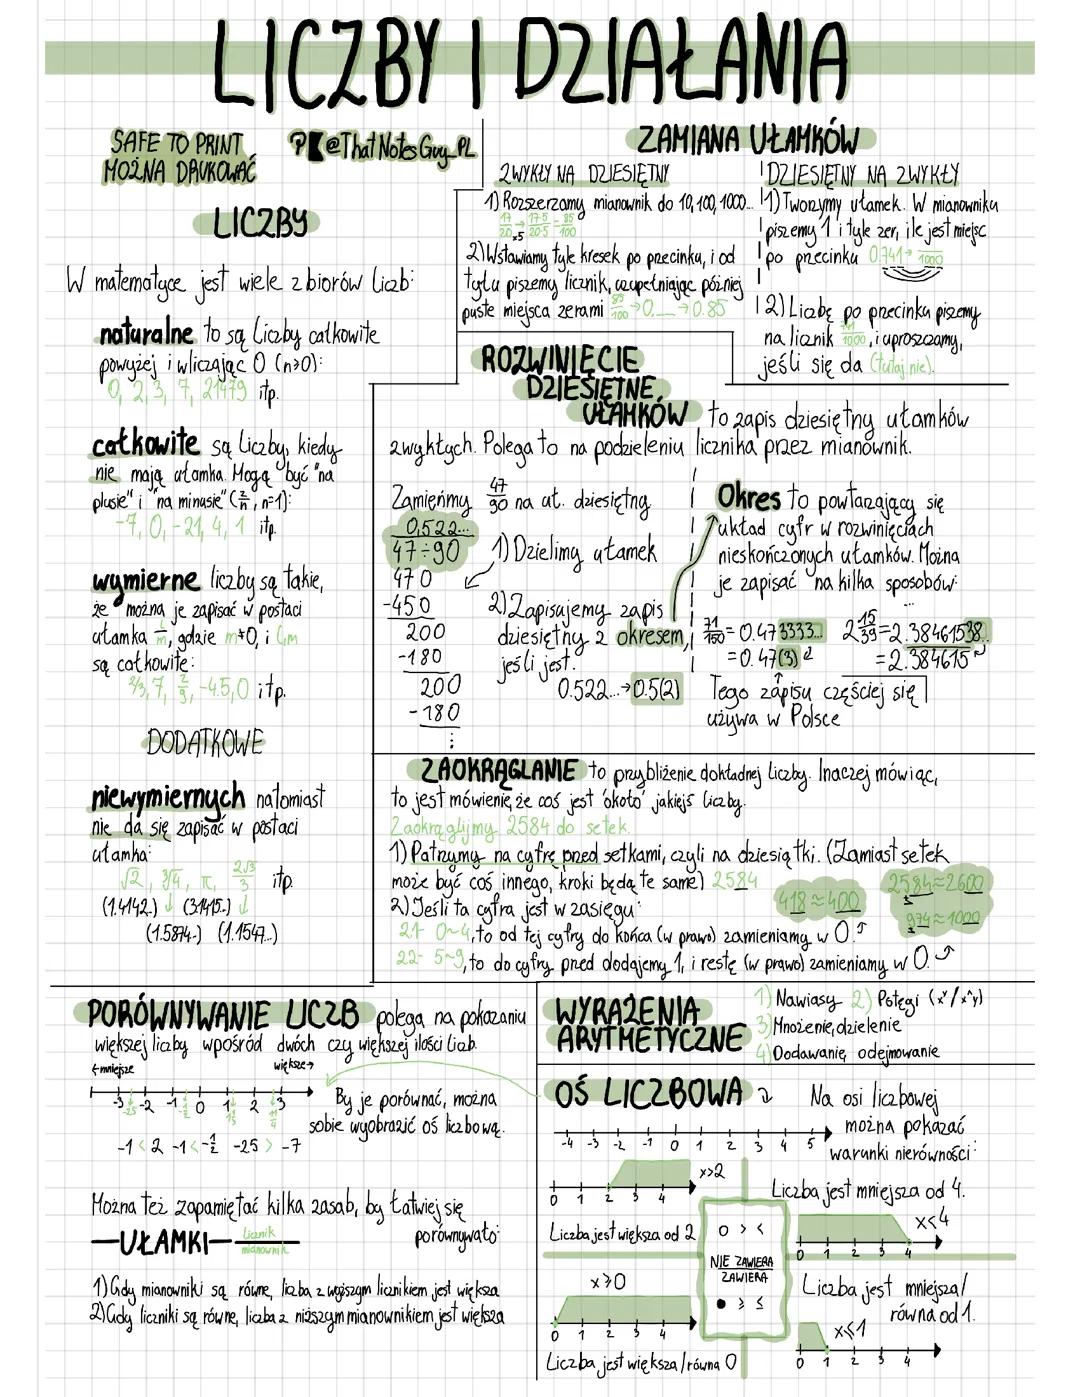 LICZBY I DZIAŁANIA
SAFE TO PRINT
MOŻNA DRUKOWAĆ
@ThatNotesGuy_PL
LICZBY
W matematyce jest wiele zbiorów liczb:
naturalne to są liczby całkowite
powyżej i wliczając 0 (n≥0):
0, 2, 3, 7, 21479 itp.
całkowite są liczby, kiedy
nie mają ułamka. Mogą być "na
plusie" i "na minusie" (z/n, n=1):
-7, 0, -21, 4, 1 itp.
wymierne liczby są takie,
że można je zapisać w postaci
ułamka l/m, gdzie m≠0, i l,m
są całkowite:
2/3, 7, 2/9, -4.5, 0 itp.
DODATKOWE
niewymiernych natomiast
nie da się zapisać w postaci
ułamka:
√2, ∛4, π, 2√3/3 itp.
(1.4142..) ↓ (3.1415..) ↓
(1.5874..) (1.1547..)
ZAMIANA UŁAMKÓW
ZWYKŁY NA DZIESIĘTNY
1) Rozszerzamy mianownik do 10, 100, 1000...
17/20 → 17·5/20·5 = 85/100
×5
2) Wstawiamy tyle kresek po przecinku, i od
tyłu piszemy licznik, uzupełniając później
puste miejsca zerami 85/100 → 0.__ → 0.85
DZIESIĘTNY NA ZWYKŁY
1) Tworzymy ułamek. W mianowniku
piszemy 1 i tyle zer, ile jest miejsc
po przecinku 0.741 → /1000
2) Liczbę po przecinku piszemy
na licznik 741/1000, i upraszczamy,
jeśli się da (tutaj nie).
ROZWINIĘCIE
DZIESIĘTNE
UŁAMKÓW to zapis dziesiętny ułamków
zwykłych. Polega to na podzieleniu licznika przez mianownik.
Zamieńmy 47/90 na uł. dziesiętną
0,522...
47÷90
470
-450
200
-180
200
-180
⋮
1) Dzielimy ułamek
2) Zapisujemy zapis
dziesiętny z okresem,
jeśli jest.
0.522... → 0.5(2)
Okres to powtarzający się
układ cyfr w rozwinięciach
nieskończonych ułamków. Można
je zapisać na kilka sposobów:
71/150 = 0.473333...
= 0.47(3)
2 15/39 = 2.38461538...
= 2.384615
Tego zapisu częściej się
używa w Polsce
ZAOKRĄGLANIE to przybliżenie dokładnej liczby. Inaczej mówiąc,
to jest mówienie, że coś jest 'około' jakiejś liczby.
Zaokrąglijmy 2584 do setek.
1) Patrzymy na cyfrę przed setkami, czyli na dziesiątki. (Zamiast setek
może być coś innego, kroki będą te same) 2584
2) Jeśli ta cyfra jest w zasięgu:
2.1- 0~4, to od tej cyfry do końca (w prawo) zamieniamy w 0.
2.2- 5~9, to do cyfry przed dodajemy 1, i resztę (w prawo) zamieniamy w 0.
418≈400
2584≈2600
974≈1000
PORÓWNYWANIE LICZB polega na pokazaniu
większej liczby wpośród dwóch czy większej ilości liczb.
←mniejsze większe→
-3 -2 -1 0 1 2 3
-2.5 -1/2 11/4
-1 < 2 -1 < -1/2 -25 > -7
By je porównać, można
sobie wyobrazić oś liczbową.
Można też zapamiętać kilka zasab, by łatwiej się
porównywało:
—UŁAMKI— licznik/mianownik
1) Gdy mianowniki są równe, liczba z wyższym licznikiem jest większa
2) Gdy liczniki są równe, liczba z niższym mianownikiem jest większa
WYRAŻENIA
ARYTMETYCZNE
1) Nawiasy 2) Potęgi (xʸ/x^y)
3) Mnożenie, dzielenie
4) Dodawanie, odejmowanie
OŚ LICZBOWA
-4 -3 -2 -1 0 1 2 3 4 5
Na osi liczbowej
można pokazać
warunki nierówności:
x>2
0 1 2 3 4
Liczba jest większa od 2
Liczba jest mniejsza od 4.
x<4
0 1 2 3 4
○ > <
NIE ZAWIERA
ZAWIERA
● ≥ ≤
x≥0
0 1 2 3 4
Liczba jest większa/równa 0
Liczba jest mniejsza/
równa od 1.
x≤1
0 1 2 3 4